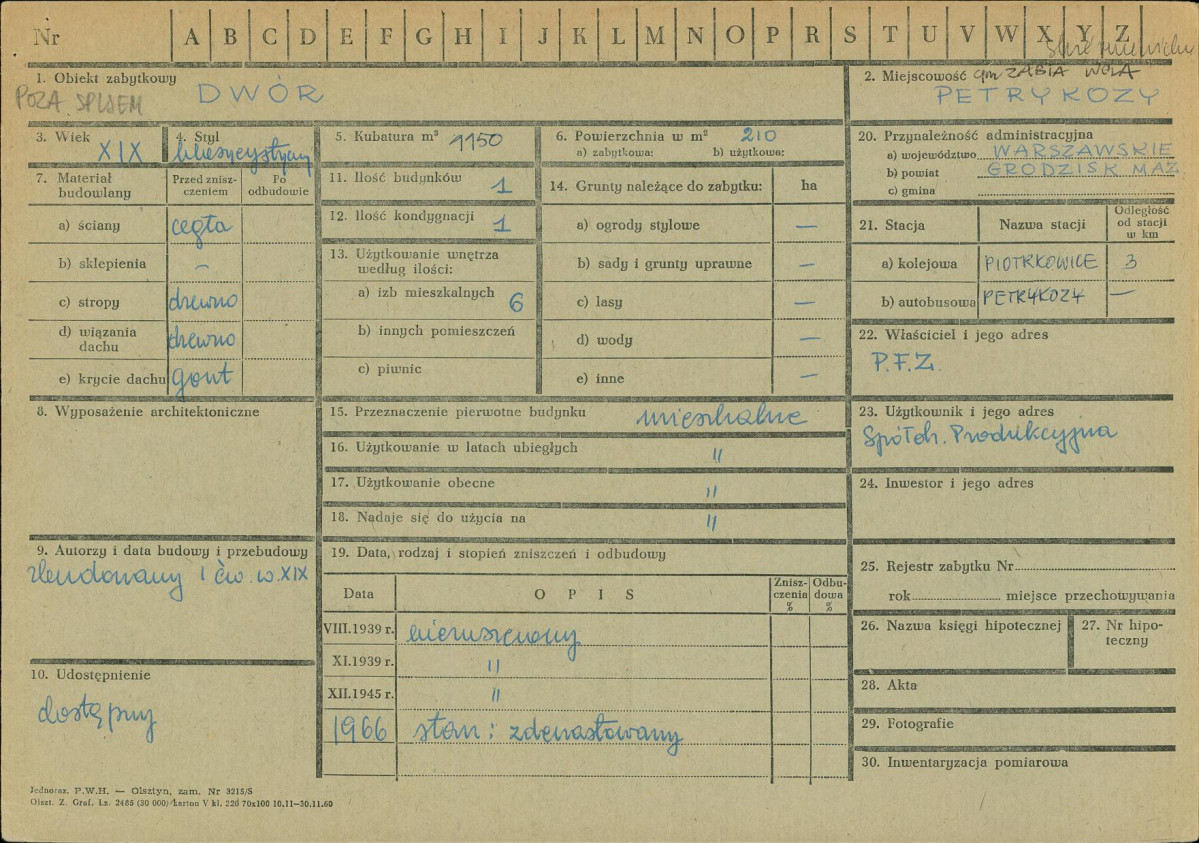 Nr A B C D E F G H I J K L M N O P R S T U V W X Y Z
1. Obiekt zabytkowy
POZA SPISEM
DWÓR
2. Miejscowość gm ŻABIA WOLA
PETRYKOZY
3. Wiek
XIX
4. Styl
klasycystyczny
5. Kubatura m³ 1150
6. Powierzchnia w m² 210
a) zabytkowa: b) użytkowa:
20. Przynależność administracyjna
a) województwo WARSZAWSKIE
b) powiat GRODZISK MAZ
c) gmina
7. Materiał budowlany
Przed zniszczeniem
Po odbudowie
a) ściany cegła
b) sklepienia –
c) stropy drewno
d) wiązania dachu drewno
e) krycie dachu gont
11. Ilość budynków 1
12. Ilość kondygnacji 1
13. Użytkowanie wnętrza
według ilości:
a) izb mieszkalnych 6
b) innych pomieszczeń
c) piwnic
14. Grunty należące do zabytku: ha
a) ogrody stylowe —
b) sady i grunty uprawne —
c) lasy —
d) wody —
e) inne —
21. Stacja Nazwa stacji Odległość od stacji w km
a) kolejowa PIOTRKOWICE 3
b) autobusowa PETRYKOZY —
22. Właściciel i jego adres
P.F.Z.
8. Wyposażenie architektoniczne
15. Przeznaczenie pierwotne budynku mieszkalne
16. Użytkowanie w latach ubiegłych "
17. Użytkowanie obecne "
18. Nadaje się do użycia na "
23. Użytkownik i jego adres
Spółdz. Produkcyjna
24. Inwestor i jego adres
9. Autorzy i data budowy i przebudowy
zbudowany I ćw. w. XIX
19. Data, rodzaj i stopień zniszczeń i odbudowy
Data OPIS Zniszczenia % Odbudowa %
VIII.1939 r. nieruszony
XI.1939 r. "
XII.1945 r. "
1966 stan: zdewastowany
10. Udostępnienie
dostępny
25. Rejestr zabytku Nr
rok miejsce przechowywania
26. Nazwa księgi hipotecznej
27. Nr hipoteczny
28. Akta
29. Fotografie
30. Inwentaryzacja pomiarowa
Jednoraz. P.W.H. — Olsztyn, zam. Nr 3215/S
Olszt. Z. Graf. Lz. 2485 (30 000) karton V kl. 220 70x100 10.11—30.11.60